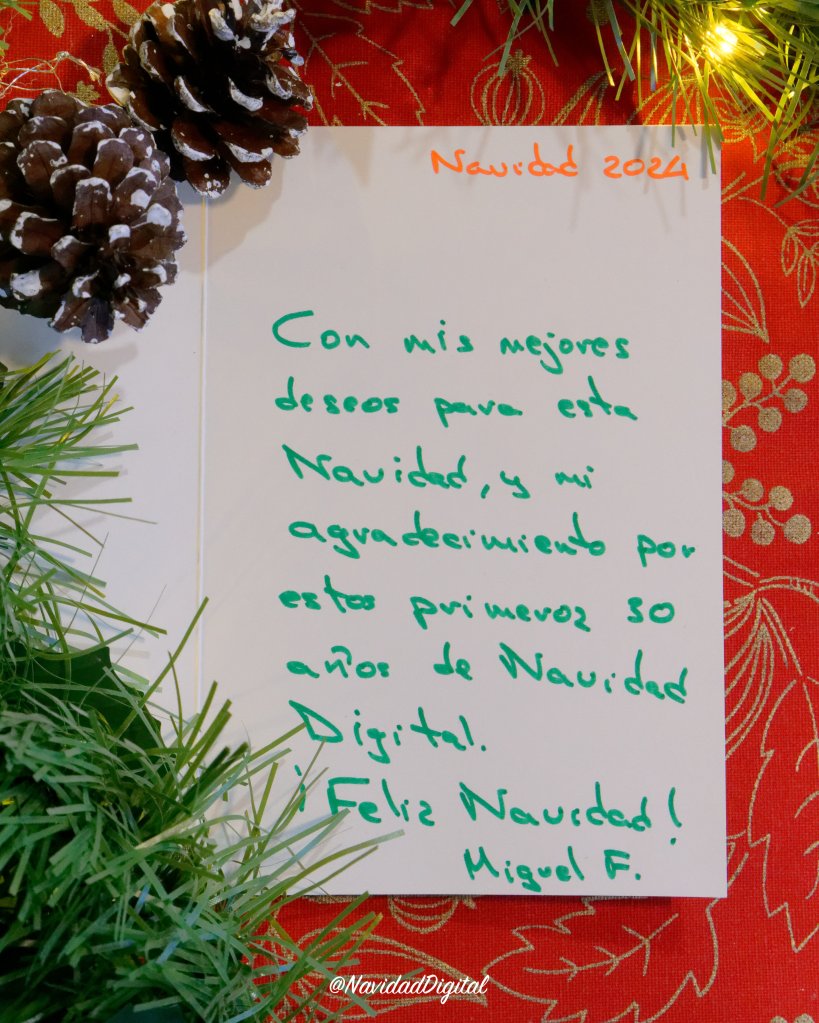 Navidad 2024
Con mis mejores
deseos para esta
Navidad, y mi
agradecimiento por
estos primeros 30
años de Navidad
Digital.
¡Feliz Navidad!
Miguel F.
@NavidadDigital